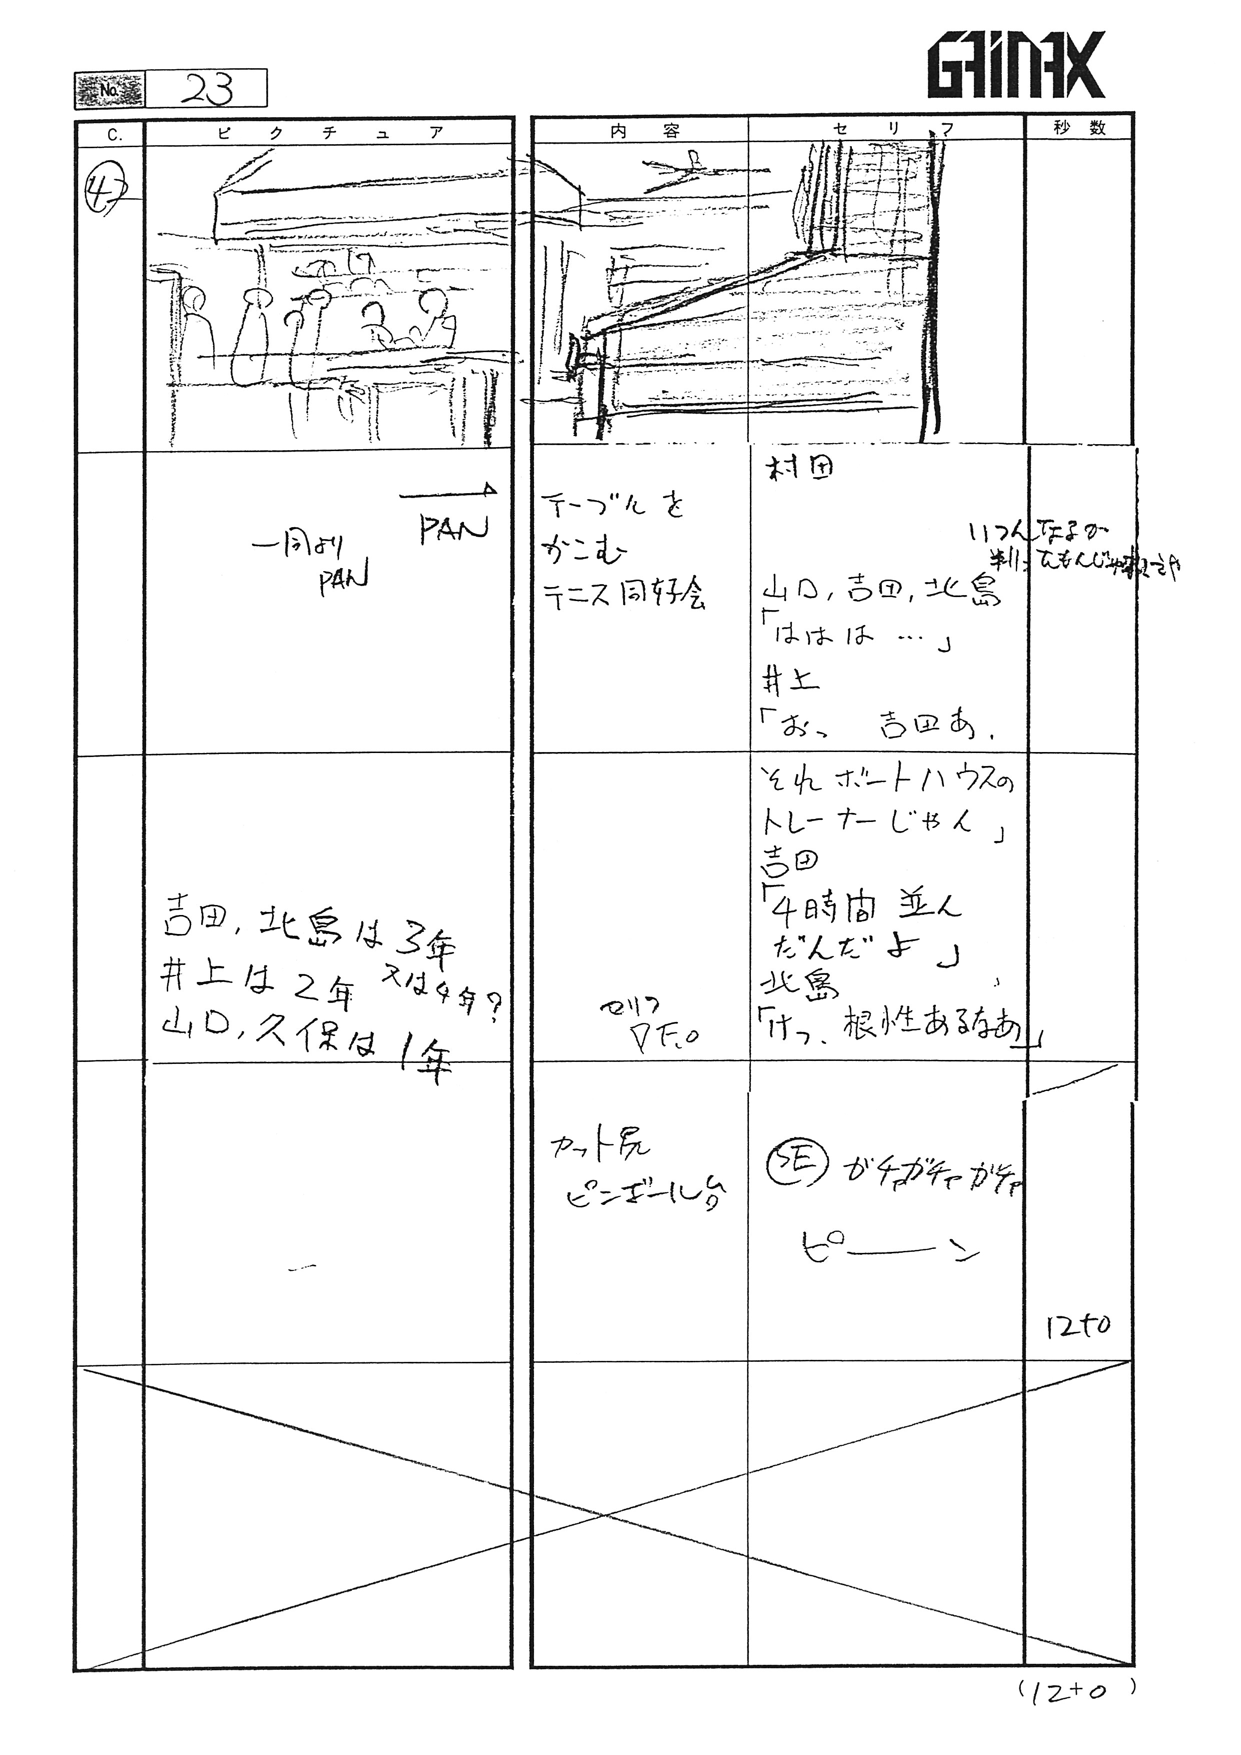 GAINAX
No. 23
C.
ピクチュア
内容
セリフ
秒数
村田
PAN
一同より
PAN
テーブルを
かこむ
テニス同好会
山口,吉田,北島
「ははは…」
井上
「おっ 吉田あ.
それボートハウスの
トレーナーじゃん」
吉田
「4時間並ん
だんだよ」
北島
「けっ、根性あるなあ」
吉田,北島は3年
井上は2年 又は4年?
山口,久保は1年
セリフ
▽F.O
カット尻
ピンボール台
SE ガチャガチャガチャ
ピーーン
12+0
(12+0)